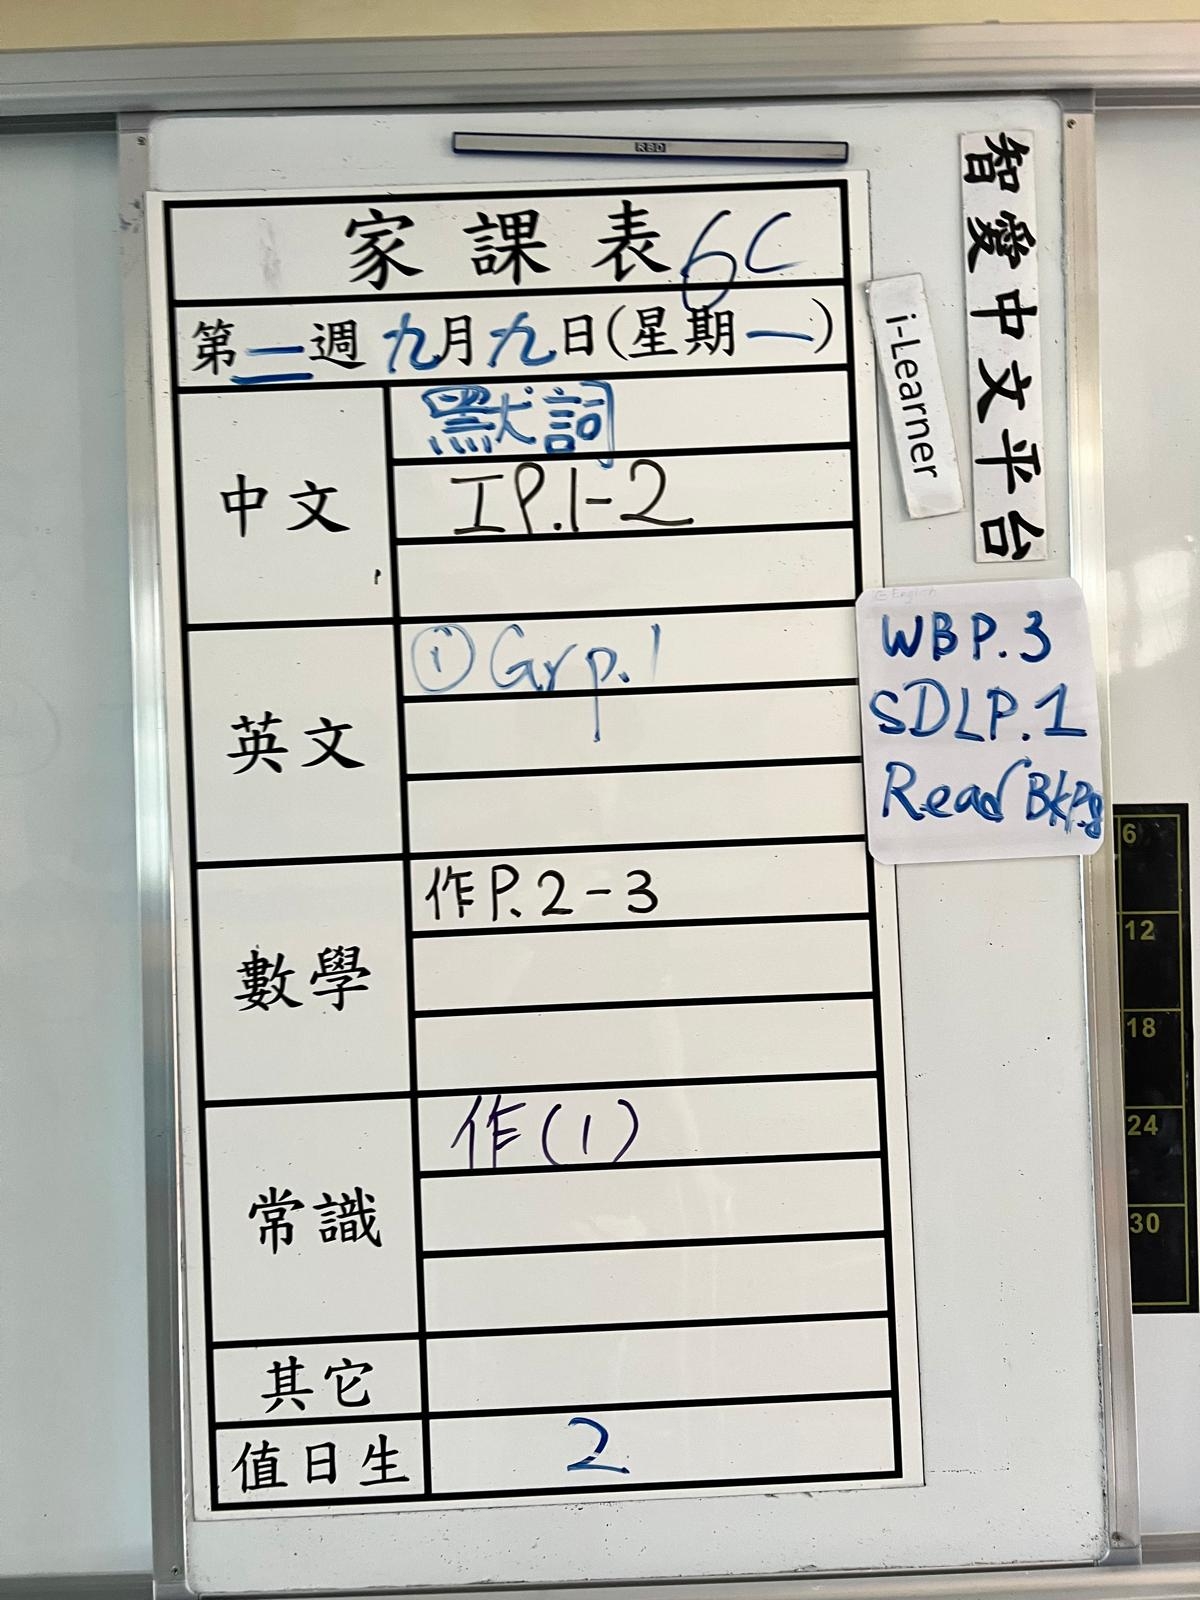 RBD
家課表 6C
第二週 九月九日(星期一)
中文
默詞
工P.1-2
英文
① Gr p.1
數學
作P.2-3
常識
作(1)
其它
值日生
2
智愛中文平台
i-Learner
English
WBP.3
SDLP.1
Read BkP.8
6
12
18
24
30